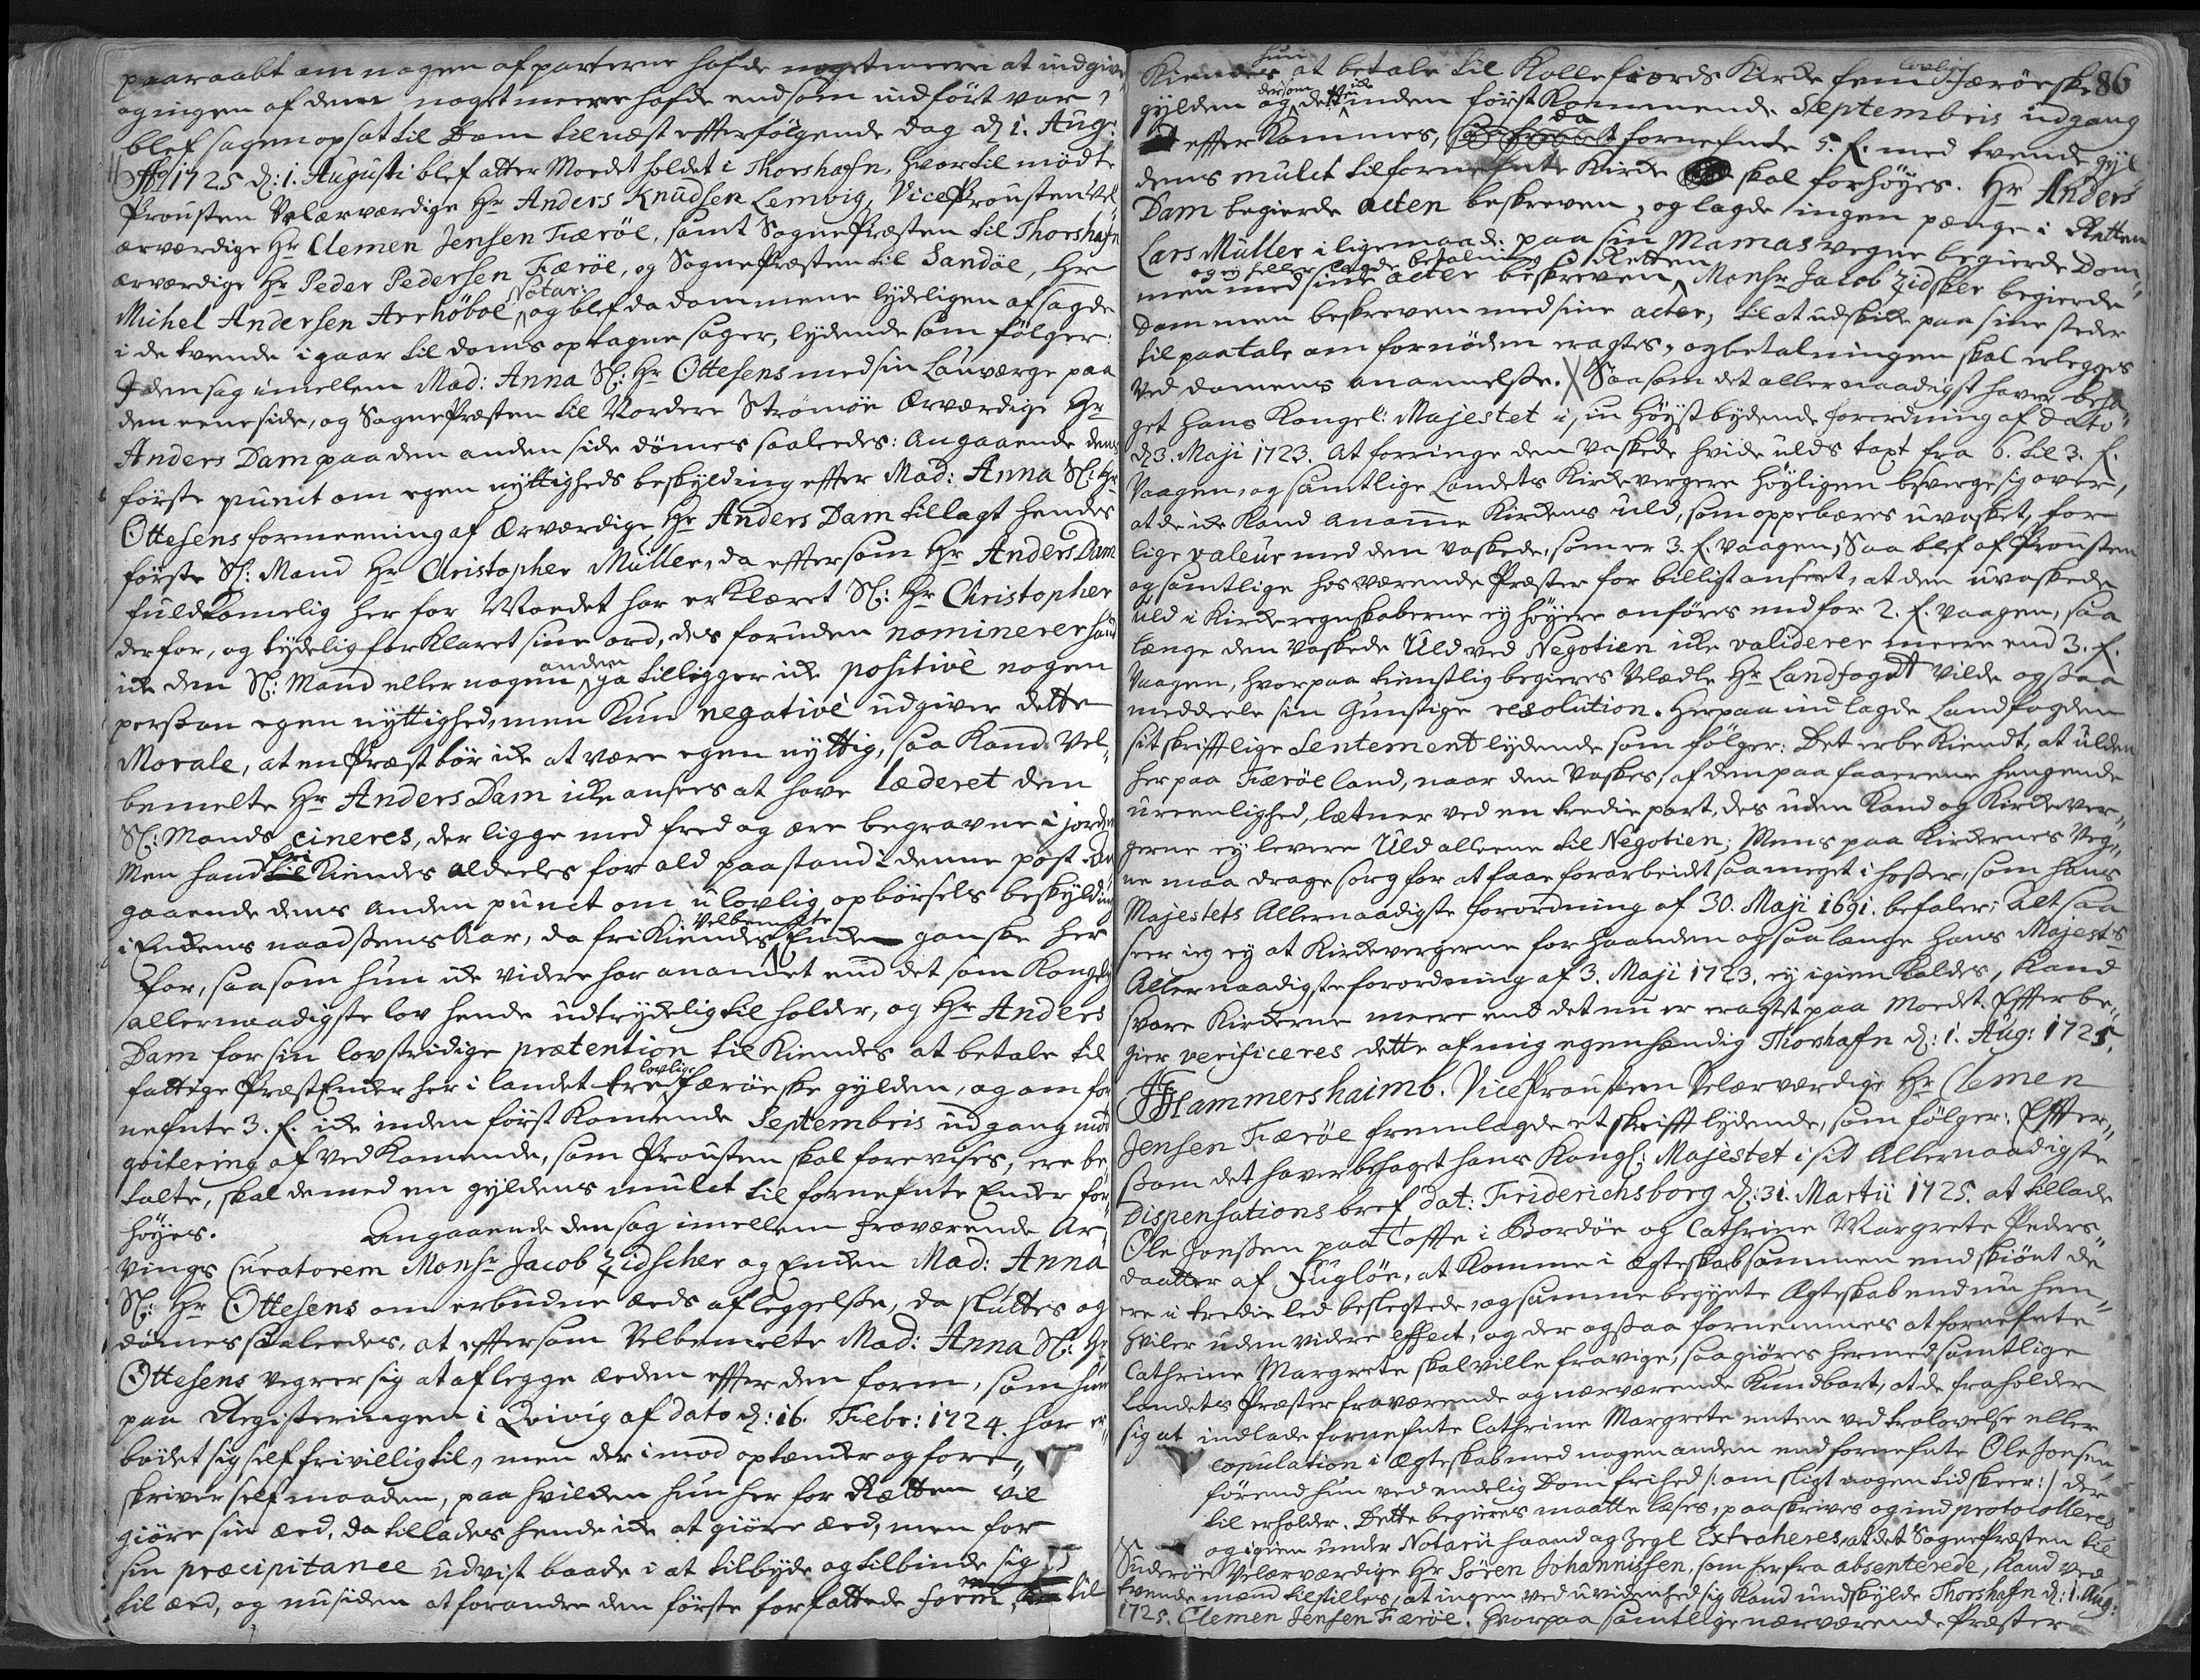 paaraabt om nogen af parterne hafde noget meere at indgive,
og ingen af dem noget meere hafde end som indført var,
blef sagen opsat til Dom til næst efterfølgende dag d. 1. Aug:
Ao 1725 d: 1. Augusti blef atter Moedet holdet i Thorshafn, hvor til mødte
Prousten Velærværdige Hr Anders Knudsen Lemvig, ViceProusten Vel-
ærværdige Hr Clemen Jensen Færöe, samt SognePræsten til Thorshafn
ærværdige Hr Peder Pedersen Færöe, og SognePræsten til Sandöe, Hr
Michel Andersen Arrhöboe Notar: og blef da dommene lydeligen afsagde
i de tvende i gaar til doms optagne sager, lydende som følger:
I den sag imellem Mad: Anna Sl: Hr Ottesens med sin Lauværge paa
den eene side, og SognePræsten til Nordere Strømöe Ærværdige Hr
Anders Dam paa den anden side dømes saaledes: Angaaende dens
første punct om egen nyttigheds beskylding effter Mad: Anna Sl: Hr
Ottesens formeening af Ærværdige Hr Anders Dam tillagt hendes
første Sl: Mand Hr Christopher Müller, da eftersom Hr Anders Dam
fuldkomelig her for Moedet har erklæret Sl: Hr Christopher
derfor, og tydelig forklaret sine ord, des foruden nominerer hand
icke den Sl: Mand eller nogen anden, ja tillegger icke positivè nogen
person egen nyttighed, men kun negativè udgiver dette
Morale, at en Præst bør icke at være egen nyttig, saa kand Vel-
bemelte Hr Anders Dam icke ansees at have læderet den
Sl: Mands cineres, der ligge med fred og ære begravne i jorden
Men hand fri kiendes aldeeles for ald paastand i denne post. An-
gaaende dens anden punct om ulovlig opbørsels beskylding
i Enckens naadsens Aar, da frikiendes Velbemelte Encke ganske her
for, saasom hun icke videre har anammet end det som Kongl:
allernaadigste lov hende udtrykelig tilholder, og Hr Anders
Dam for sin lovstridige prætention tilkiendes at betale til
fattige PræstEncker her i landet tre lovlige færöeske gylden, og om for-
nefnte 3. f. icke inden først komende Septembris udgang mod
qvitering af vedkomende, som Prousten skal forevises, ere be-
talte, skal de med en gyldens mulct til fornefnte Encker for-
høyes. Angaaende den sag imellem fraværende Ar-
vings Curatorem Monsr Jacob Zidscher og Encken Mad: Anna
Sl: Hr Ottesens om erbudne eeds afleggelse, da sluttes og
dømes saaledes, at eftersom Velbemelte Mad: Anna Sl: Hr
Ottesens vegrer sig at aflegge eeden effter den form, som hun
paa Registeringen i Qvivig af dato d: 16. Febr: 1724. har er-
bødet sig self frivillig til, men der imod optencker og fore-
skriver self maaden, paa hvilken hun her for Rætten vil
giøre sin æed, da tillades hende icke at giøre æed, men for
sin præcipitance udvist baade i at tilbyde og tilbinde sig
til æed, og nu siden at forandre den første forfattede form, til
86
Kiendes hun at betale til Kollefiords Kirke fem lovlige Færöeske
gylden og dersom det icke inden først kommende Septembris udgang
effterkommes, da fornefnte 5. f. med tvende gyl
dens mulct til fornefnte Kirke skal forhøyes. Hr Anders
Dam begierde acten beskreven, og lagde ingen penge i Retten
Lars Müller i ligemaade paa sin Mamas vegne begierde Dom-
men med sine acter beskreven og ey heller lagde betalning i Retten, Monsr Jacob Zidsker begierde
Dommen beskreven med sine acter, til at udskicke paa sine steder
til paatale om fornøden eragtes, og betalningen skal erlegges
ved domens anammelse. X Saasom det allernaadigst haver beha-
get hans Kongel: Majestet i sin høyst bydende forordning af dato
d 3. Maji 1723. At forringe den vaskede hvide ulds taxt fra 6. til 3. f.
Vaagen, og samtlige Landets Kirckevergere høyligen besverge sig over,
at de icke kand anamme Kirckens uld, som oppebæres uvasket, for
lige valeur med den vaskede, som er 3. f. vaagen, Saa blef af Prousten
og samtlige hosværende Præster for billigst anseet, at den uvaskede
uld i Kirckeregnskaberne ey høyere anføres end for 2. f. vaagen, saa
længe den vaskede Uld ved Negotien icke validerer meere end 3. f.
Vaagen, hvorpaa tienstlig begieres Velædle Hr Landfogdt vilde ogsaa
meddeele sin Gunstige resolution. Herpaa indlagde Landfogden
sit skriftlige Sentement lydende som følger: Det er bekiendt, at ulden
her paa Færöe land, naar den vaskes, af den paa faarene hengende
ureenlighed, lætner ved en tredie part, des uden kand og Kirckever-
gerne ey levere Uld alleene til Negotien; Mens paa Kirckernes veg-
ne maa drage sorg for at faae forarbeidt saa meget i hoser, som hans
Majestets Allernaadigste forordning af 30. Maji 1691. befaler; altsaa
seer ieg ey at Kirckevergerne for haanden og saa længe hans Majests
Allernaadigste forordning af 3. Maji 1723. ey igien kaldes, kand
svare Kirckerne meere end det nu er eragtet paa Moedt. Effter be-
gier verificeres dette af mig egenhændig Thorshafn d: 1. Aug: 1725.
Hammershaimb. ViceProusten Velærværdige Hr Clemen
Jensen Færöe fremlagde et skrifft lydende, som følger: Effter-
som det haver behaget hans Kongl: Majestet i sit Allernaadigste
Dispensations bref, dat: Friderichsborg d: 31. Martii 1725. at tillade
Ole Joensen paa Toffte i Bordöe og Cathrine Margrete Peders-
daatter af Fuglöe, at komme i Ægteskab sammen endskiönt de
ere i tredie led beslegtede, og samme begynte Ægteskab endnu hen-
hviler uden videre effect, og der ogsaa fornemmes at fornefnte
Cathrine Margrete skal ville fravige, saa giøres hermed samtlige
Landets Præster fraværende og nærværende kundbart, at de fraholder
sig at indlade fornefnte Cathrine Margrete enten ved trolovelse eller
copulation i Ægteskab med nogen anden end fornefnte Ole Joensen,
førend hun ved endelig Dom frihed /: om sligt nogen tid skeer :/ der
til erholder. Dette begieres maatte læses, paaskrives og indprotocolleres
og igien under Notarii haand og Zegl Extraheres, at det SognePræsten til
Suderöe Velærværdige Hr Sören Johannissen, som herfra absenterede, kand ved
tvende mænd tilstilles, at ingen ved uvidenhed sig kand undskylde Thorshafn d: 1. Aug:
1725. Clemen Jensen Færöe. Hvorpaa samtlige nærværende Præster